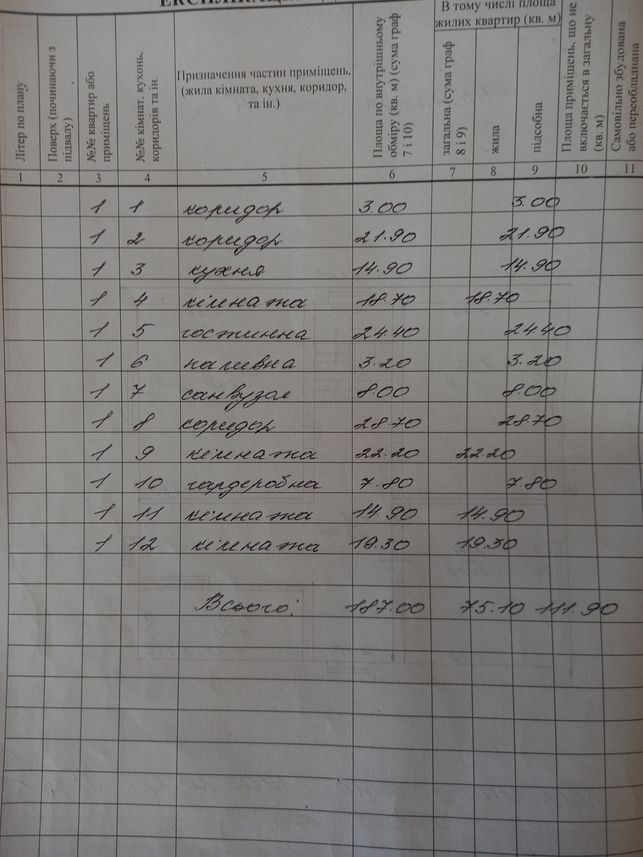 Літер по плану
Поверх (починаючи з підвалу)
№№ квартир або приміщень
№№ кімнат, кухонь, коридорів та ін.
Призначення частин приміщень,
(жила кімната, кухня, коридор,
та ін.)
Площа по внутрішньому обміру (кв. м) (сума граф 7 і 10)
В тому числі площа
жилих квартир (кв. м)
загальна (сума граф 8 і 9)
жила
підсобна
Площа приміщень, що не включається в загальну (кв. м)
Самовільно збудована або переобладнана
1 2 3 4 5 6 7 8 9 10 11
1 1 коридор 3.00 3.00
1 2 коридор 21.90 21.90
1 3 кухня 14.90 14.90
1 4 кімната 18.70 18.70
1 5 гостинна 24.40 24.40
1 6 паливна 3.20 3.20
1 7 санвузол 8.00 8.00
1 8 коридор 28.70 28.70
1 9 кімната 22.20 22.20
1 10 гардеробна 7.80 7.80
1 11 кімната 14.90 14.90
1 12 кімната 19.30 19.30
Всього: 187.00 75.10 111.90